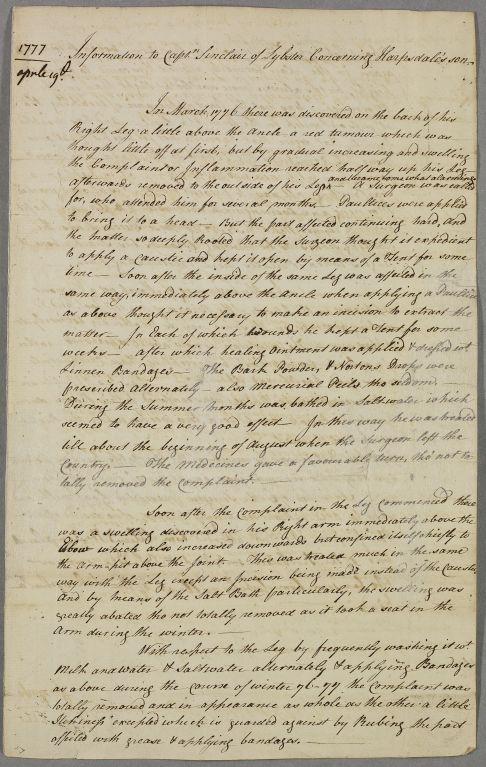 1777
Aprile 19th
Information to Captn Sinclair of Lybster Concerning Harpsdale's son
In March 1776 there was discovered on the back of his
Right Leg a little above the Ancle a red tumour which was
thought little off at first, but by gradual increasing and swelling
the Complaint or Inflammation reached half way up his Leg
and became somewhat alarming
afterwards removed to the outside of his Leg A Surgeon was called
for, who attended him for several months. Paultices were applied
to bring it to a head — But the part affected continuing hard, and
the matter so deeply Rooted that the Surgeon thought it expedient
to apply a Caustic and kept it open by means of a Tent for some
time — Soon after the inside of the same Leg was affected in the
same way, immediately above the Ancle when applying a Paultice
as above thought it necessary to make an incision to extract the
matter — In Each of which wounds he kept a Tent for some
weeks — after which healing Ointment was applied & dressed wt
Linnen Bandages — The Bark Powders & Nortons Drops were
prescribed alternately — also Mercurial Pills tho seldom.
During the Summer Months was bathed in Saltwater which
seemed to have a very good effect — In this way he was treated
till about the beginning of August when the Surgeon left the
Country. — The Medecines gave a favourable turn, tho' not to
tally removed the Complaint. —
Soon after the Complaint in the Leg commenced there
was a swelling discovered in his Right arm immediately above the
Elbow which also increased downwards but confined itself chiefly to
the Arm-pit above the Joint — This was treated much in the same
way with the Leg except an Incision being made instead of the Caustic
And by means of the Salt Bath particularly, the swelling was
greatly abated tho not totally removed as it took a seat in the
Arm during the winter. —
With respect to the Leg by frequently washing it wt
Milk and water & Saltwater alternately & applying Bandages
as above during the Course of winter 76-77 the Complaint was
totally removed and in appearance as whole as the other a little
Itchiness excepted which is guarded against by Rubing the part
affected with grease & applying bandages. —